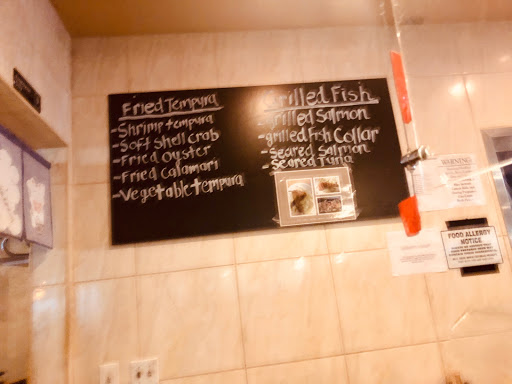 Fried Tempura
-Shrimp tempura
-Soft Shell Crab
-Fried Oyster
-Fried Calamari
-Vegetable tempura
Grilled Fish
-Grilled Salmon
-grilled Fish Collar
-Seared Salmon
-Seared Tuna
WARNING
FOOD ALLERGY
NOTICE